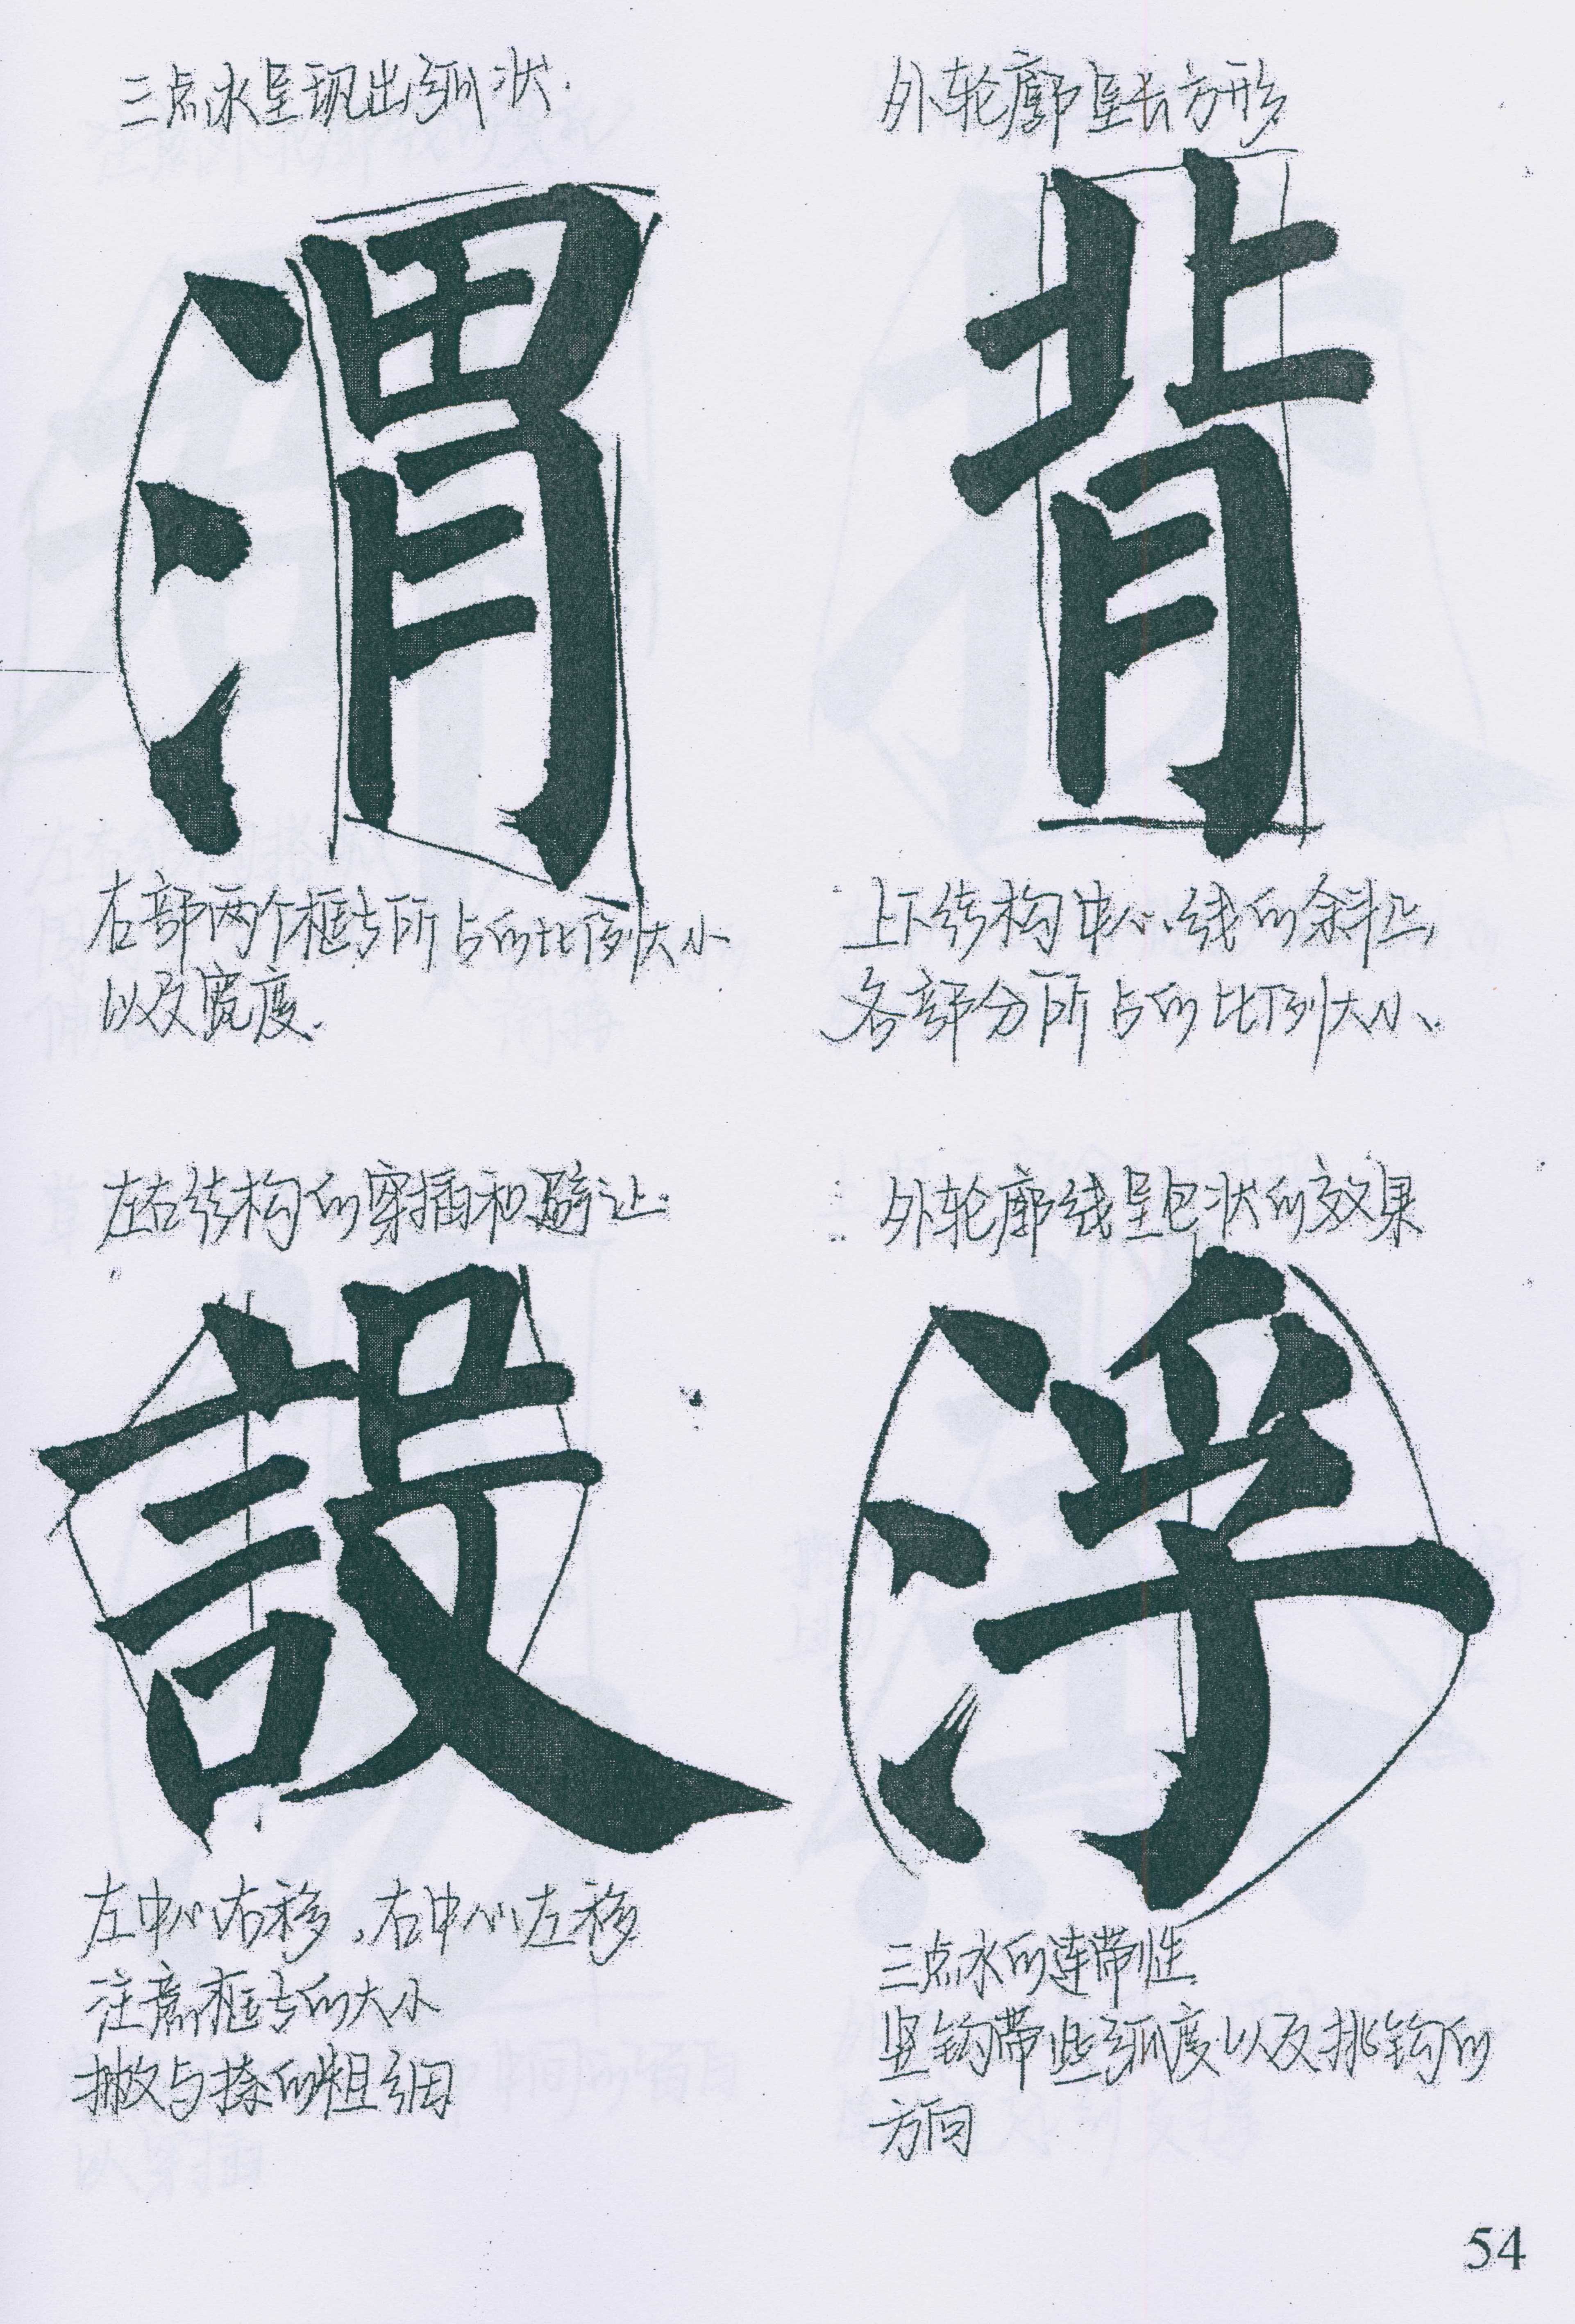 三点水呈现出弧状.
渭
右部两个框与所占的比例大小
以及宽度.
外轮廓呈长方形
背
上下结构中心线的斜正,
各部分所占的比例大小、
左右结构的穿插和避让:
設
左中心右移,右中心左移
注意框与的大小
撇与捺的粗细
外轮廓线呈包状的效果
浮
三点水的连带性.
竖钩带些弧度以及挑钩的
方向
54